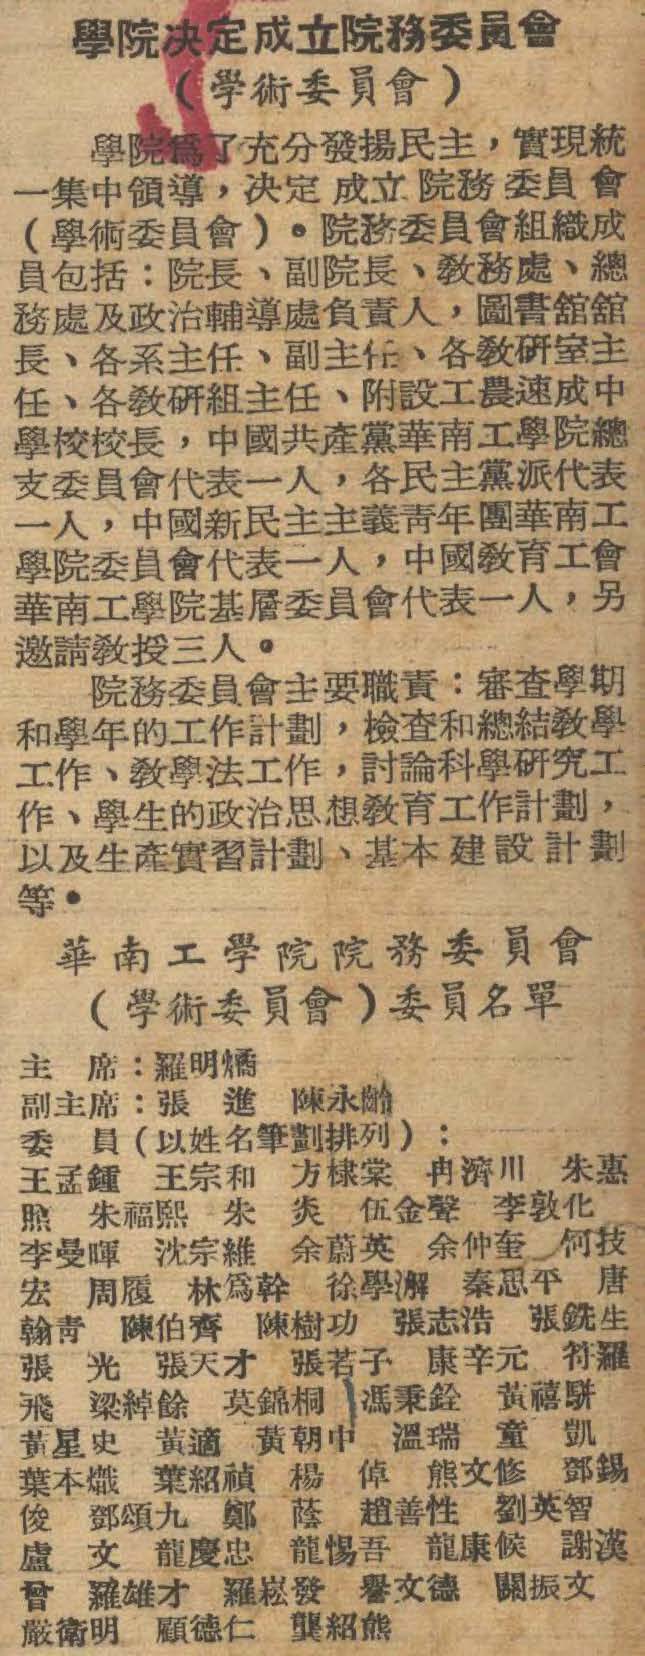 學院决定成立院務委員會
（學術委員會）
學院爲了充分發揚民主，實現統
一集中領導，决定成立院務委員會
（學術委員會）。院務委員會組織成
員包括：院長、副院長、敎務處、總
務處及政治輔導處負責人，圖書舘舘
長、各系主任、副主任、各敎研室主
任、各敎研組主任、附設工農速成中
學校校長，中國共產黨華南工學院總
支委員會代表一人，各民主黨派代表
一人，中國新民主主義靑年團華南工
學院委員會代表一人，中國敎育工會
華南工學院基層委員會代表一人，另
邀請敎授三人。
院務委員會主要職責：審查學期
和學年的工作計劃，檢查和總結敎學
工作、敎學法工作，討論科學研究工
作、學生的政治思想敎育工作計劃，
以及生產實習計劃、基本建設計劃
等。
華南工學院院務委員會
（學術委員會）委員名單
主　席：羅明燏
副主席：張　進　陳永齡
委　員（以姓名筆劃排列）：
王孟鍾　王宗和　方棣棠　冉濟川　朱惠
照　朱福熙　朱　炎　伍金聲　李敦化
李曼暉　沈宗維　余蔚英　余仲奎　何技
宏　周履　林爲幹　徐學澥　秦思平　唐
翰靑　陳伯齊　陳樹功　張志浩　張銑生
張　光　張天才　張若子　康辛元　符羅
飛　梁綽餘　莫錦桐　馮秉銓　黃禧駢
黃星史　黃適　黃朝中　溫瑞　童　凱
葉本熾　葉紹禎　楊　倬　熊文修　鄧錫
俊　鄧頌九　鄭　蔭　趙善性　劉英智
盧　文　龍慶忠　龍惕吾　龍康候　謝漢
曾　羅雄才　羅崧發　譽文德　關振文
嚴衛明　顧德仁　龔紹熊